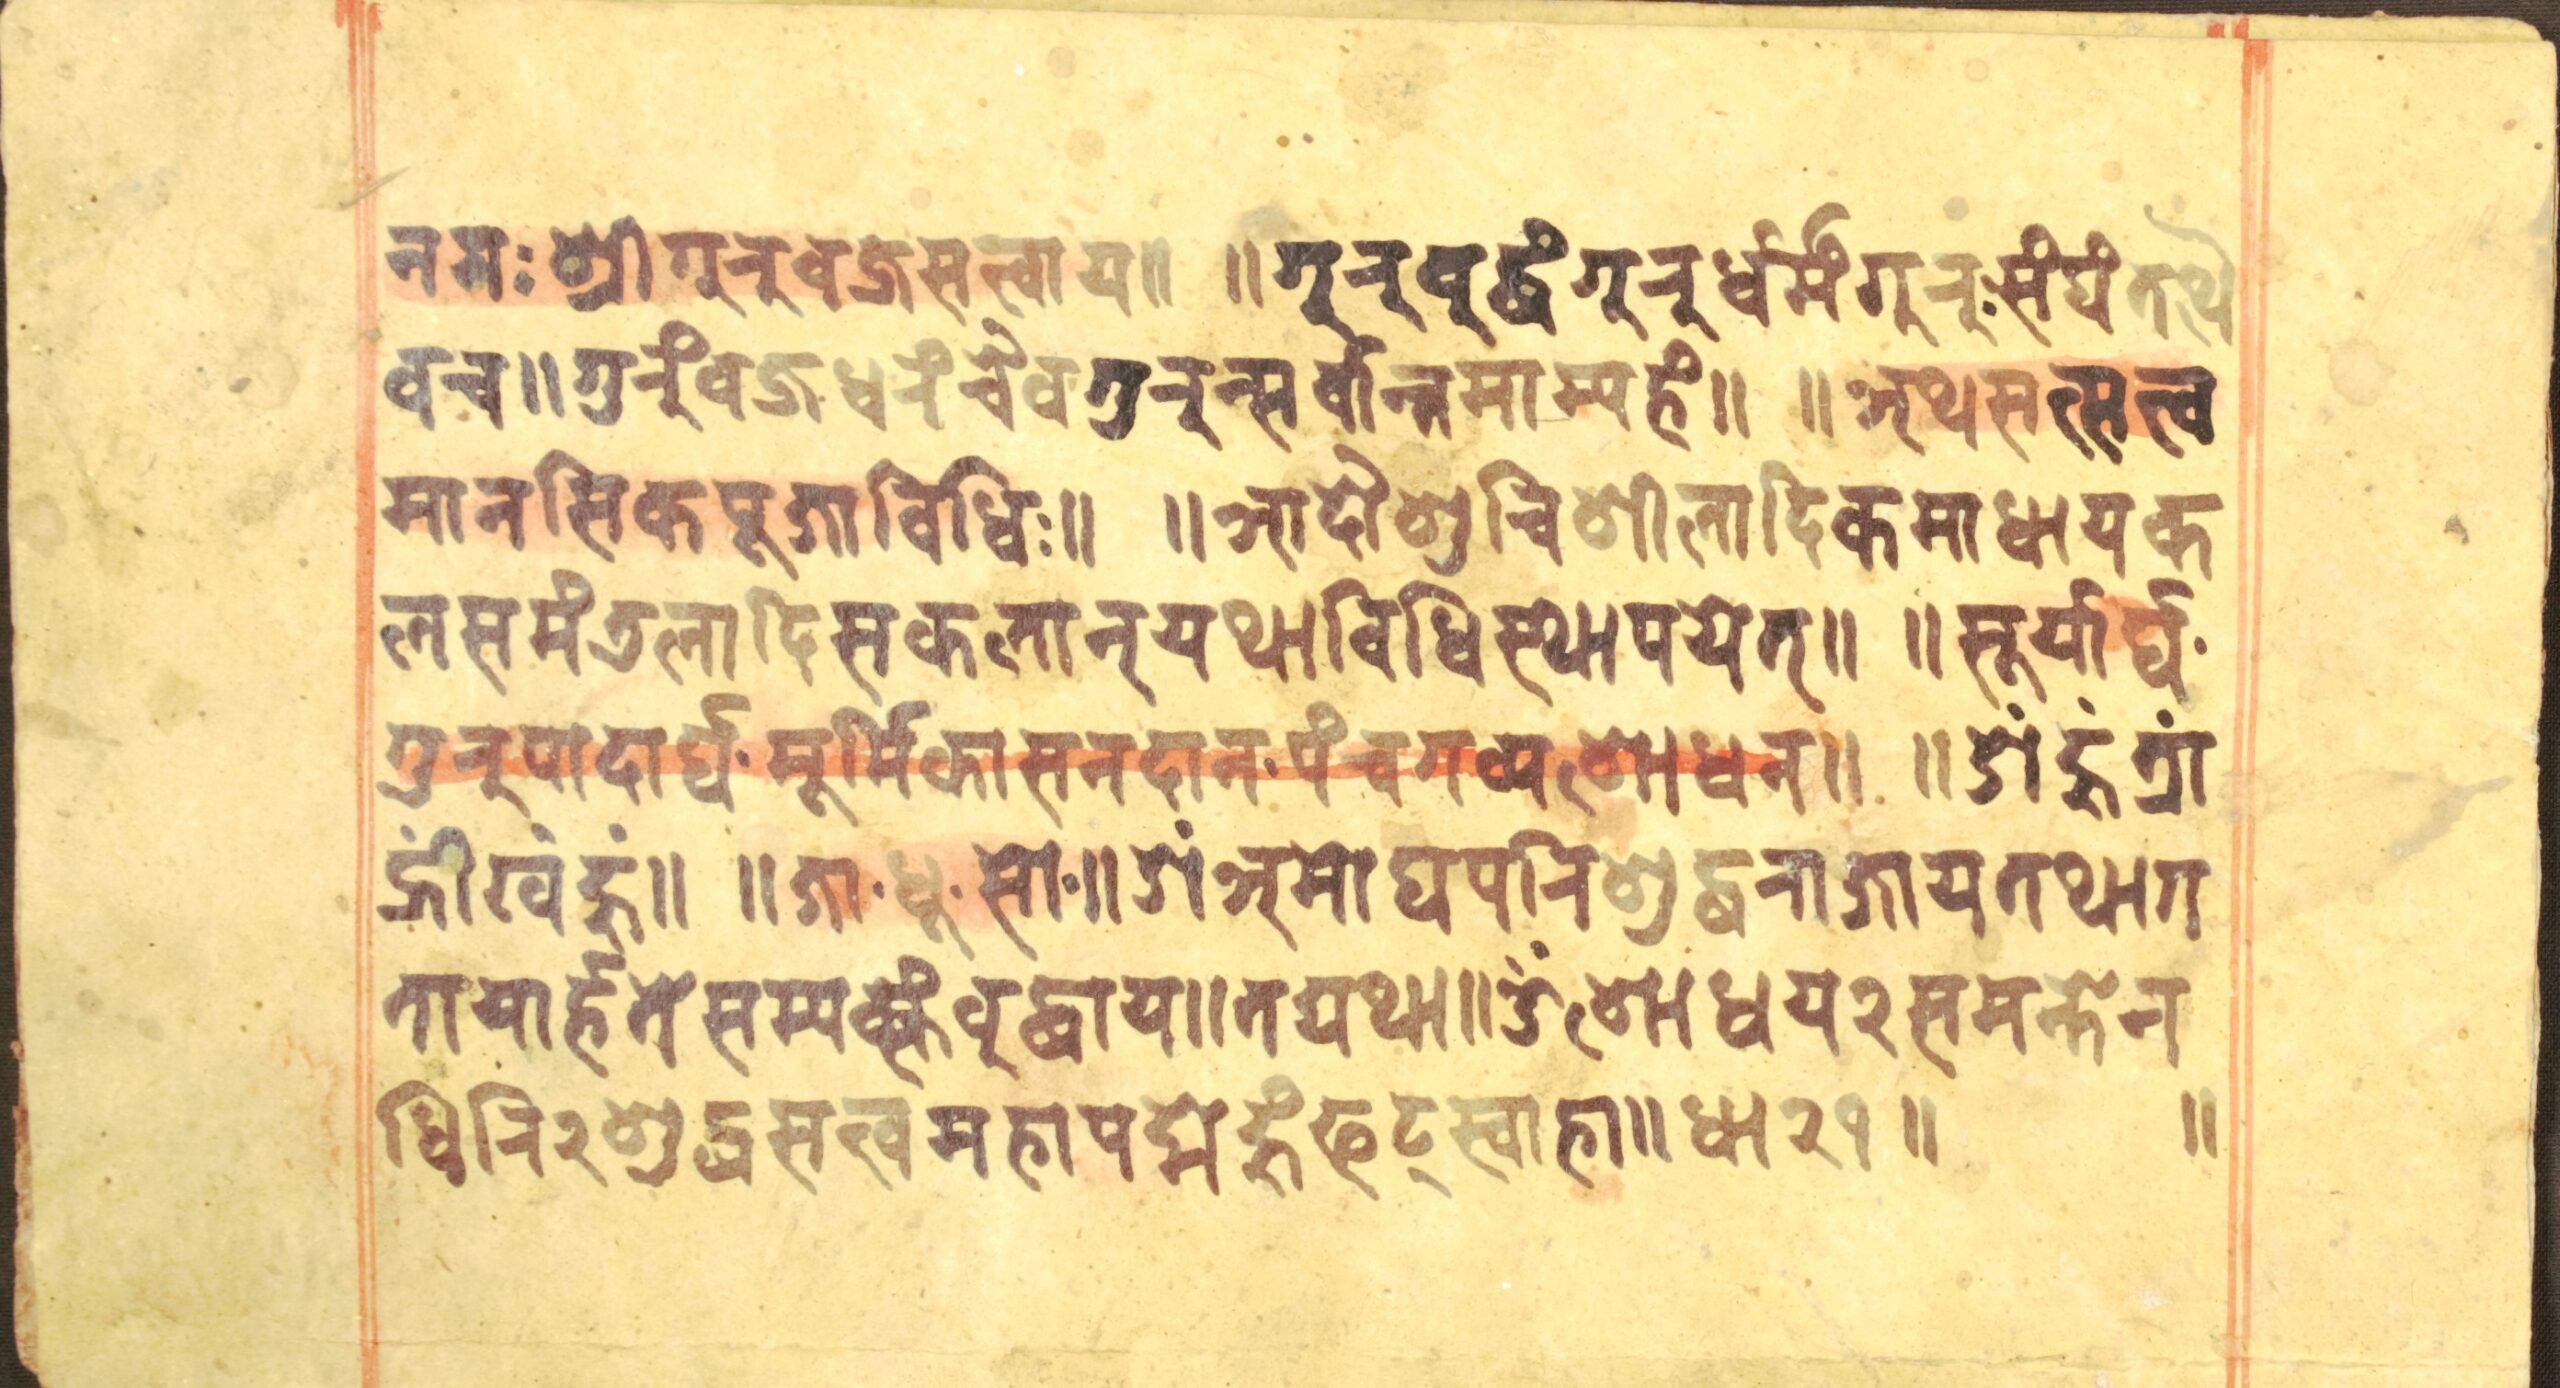 नमः श्रीगुरुवज्रसत्त्वाय॥ ॥गुरुबुद्धं गुरुर्धर्मं गुरुः संघं तथै
वच॥गुरुंवज्रधरं चैव गुरुन्सर्वान्नमाम्यहं॥ ॥अथ सत्सत्त्व
मानसिकपूजाविधिः॥ ॥आदौ शुचिशीलादिकमाधाय क
लसमंतलादिसकलान् यथाविधि स्थापयेत्॥ ॥सूर्यार्घ·
गुरुपादार्घ·मूर्मिकासनदान·पंचगव्यशोधन॥ ॥ॐ ह्रुं त्रां
ह्रीं खं हुं॥ ॥जा·धू·सो·॥ॐ अमोघपरिशुद्धराजाय तथाग
तायार्हते सम्यक्सं बुद्धाय॥तद्यथा॥ॐ शोधय२समन्तेन
धिरि२शुद्धसत्त्व महापद्मे हुं फट् स्वाहा॥धा२१॥ ॥